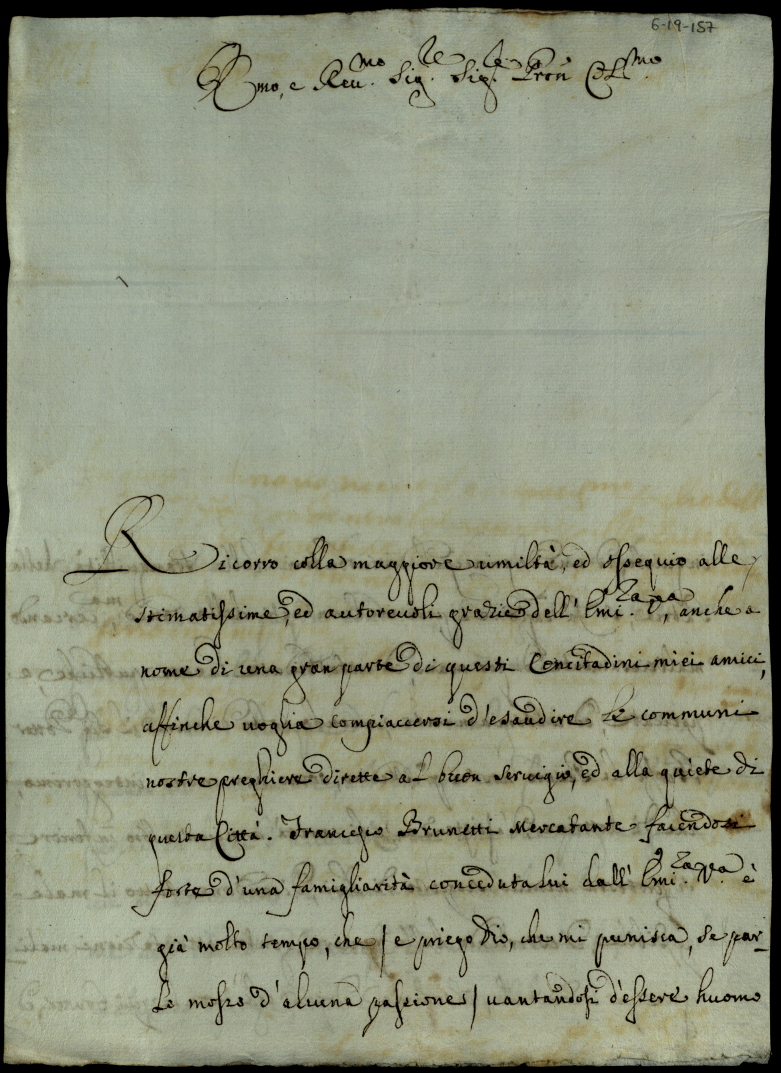 6-19-157
Emo, e Reu.mo Sig.re Sig.re Pron Col.mo
Ricorro colla maggiore umiltà, ed ossequio alle
stimatissime, ed autoreuoli grazie dell' Emi.za V.a, anche a
nome di una gran parte di questi Concitadini miei amici,
affinche uoglia compiaccersi d'esaudire le communi
nostre preghiere dirette al buon seruigio, ed alla quiete di
questa Città. Francesco Brunetti Mercatante facendosi
forte d'una famigliarità concedutalui dall' Emi.za V.a è
già molto tempo, che / e priego Dio, che mi punisca, se par-
lo mosso d'alcuna passione / uantandosi d'essere huomo